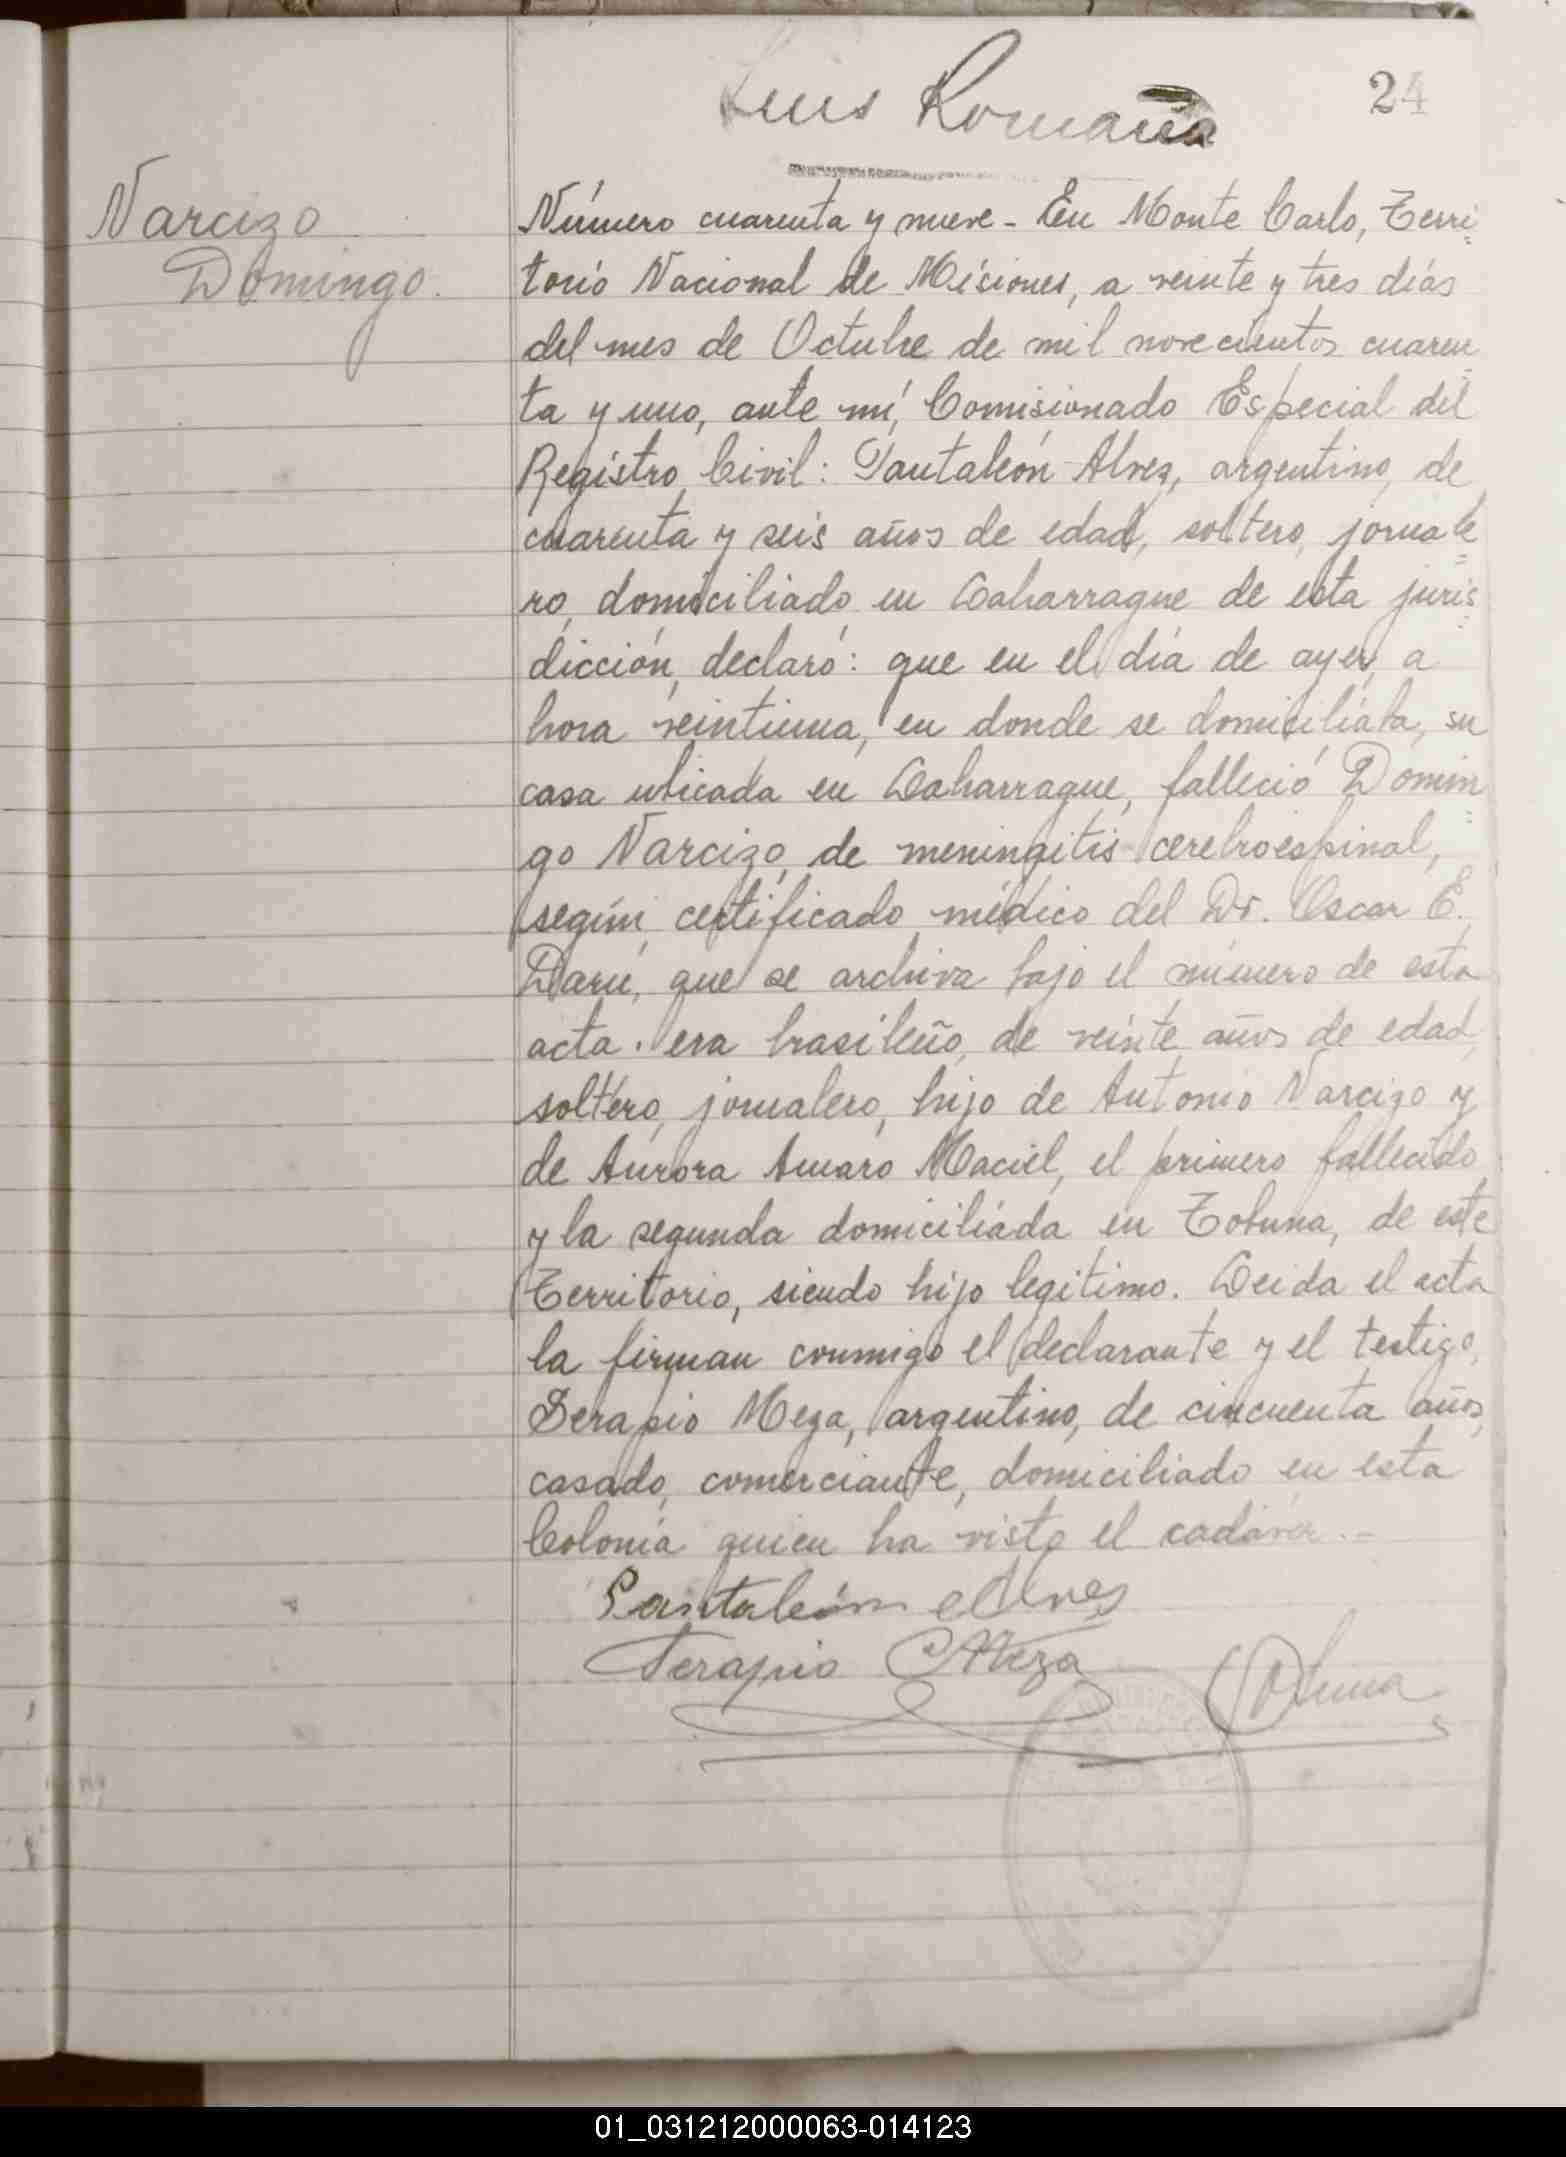 Luis Romaña
24
Narcizo
Domingo.
Número cuarenta y nueve - En Monte Carlo, Terri=
torio Nacional de Misiones, a veinte y tres días
del mes de Octubre de mil novecientos cuaren=
ta y uno, ante mí, Comisionado Especial del
Registro Civil: Pantaleón Alvez, argentino, de
cuarenta y seis años de edad, soltero, jornale=
ro, domiciliado en Laharrague de esta juris=
dicción, declaró: que en el día de ayer, a
hora veintiuna, en donde se domiciliaba, su
casa ubicada en Laharrague, falleció Domin=
go Narcizo, de meningitis cerebroespinal,
según certificado médico del Dr. Oscar E.
Darú, que se archiva bajo el número de esta
acta. era brasileño, de veinte años de edad,
soltero, jornalero, hijo de Antonio Narcizo y
de Aurora Amaro Maciel, el primero fallecido
y la segunda domiciliada en Tobuna, de este
Territorio, siendo hijo legitimo. Leida el acta
la firman conmigo el declarante y el testigo,
Serapio Meza, argentino, de cincuenta años,
casado, comerciante, domiciliado en esta
Colonia quien ha visto el cadáver.-
Pantaleón Alves
Serapio Meza
01_031212000063-014123